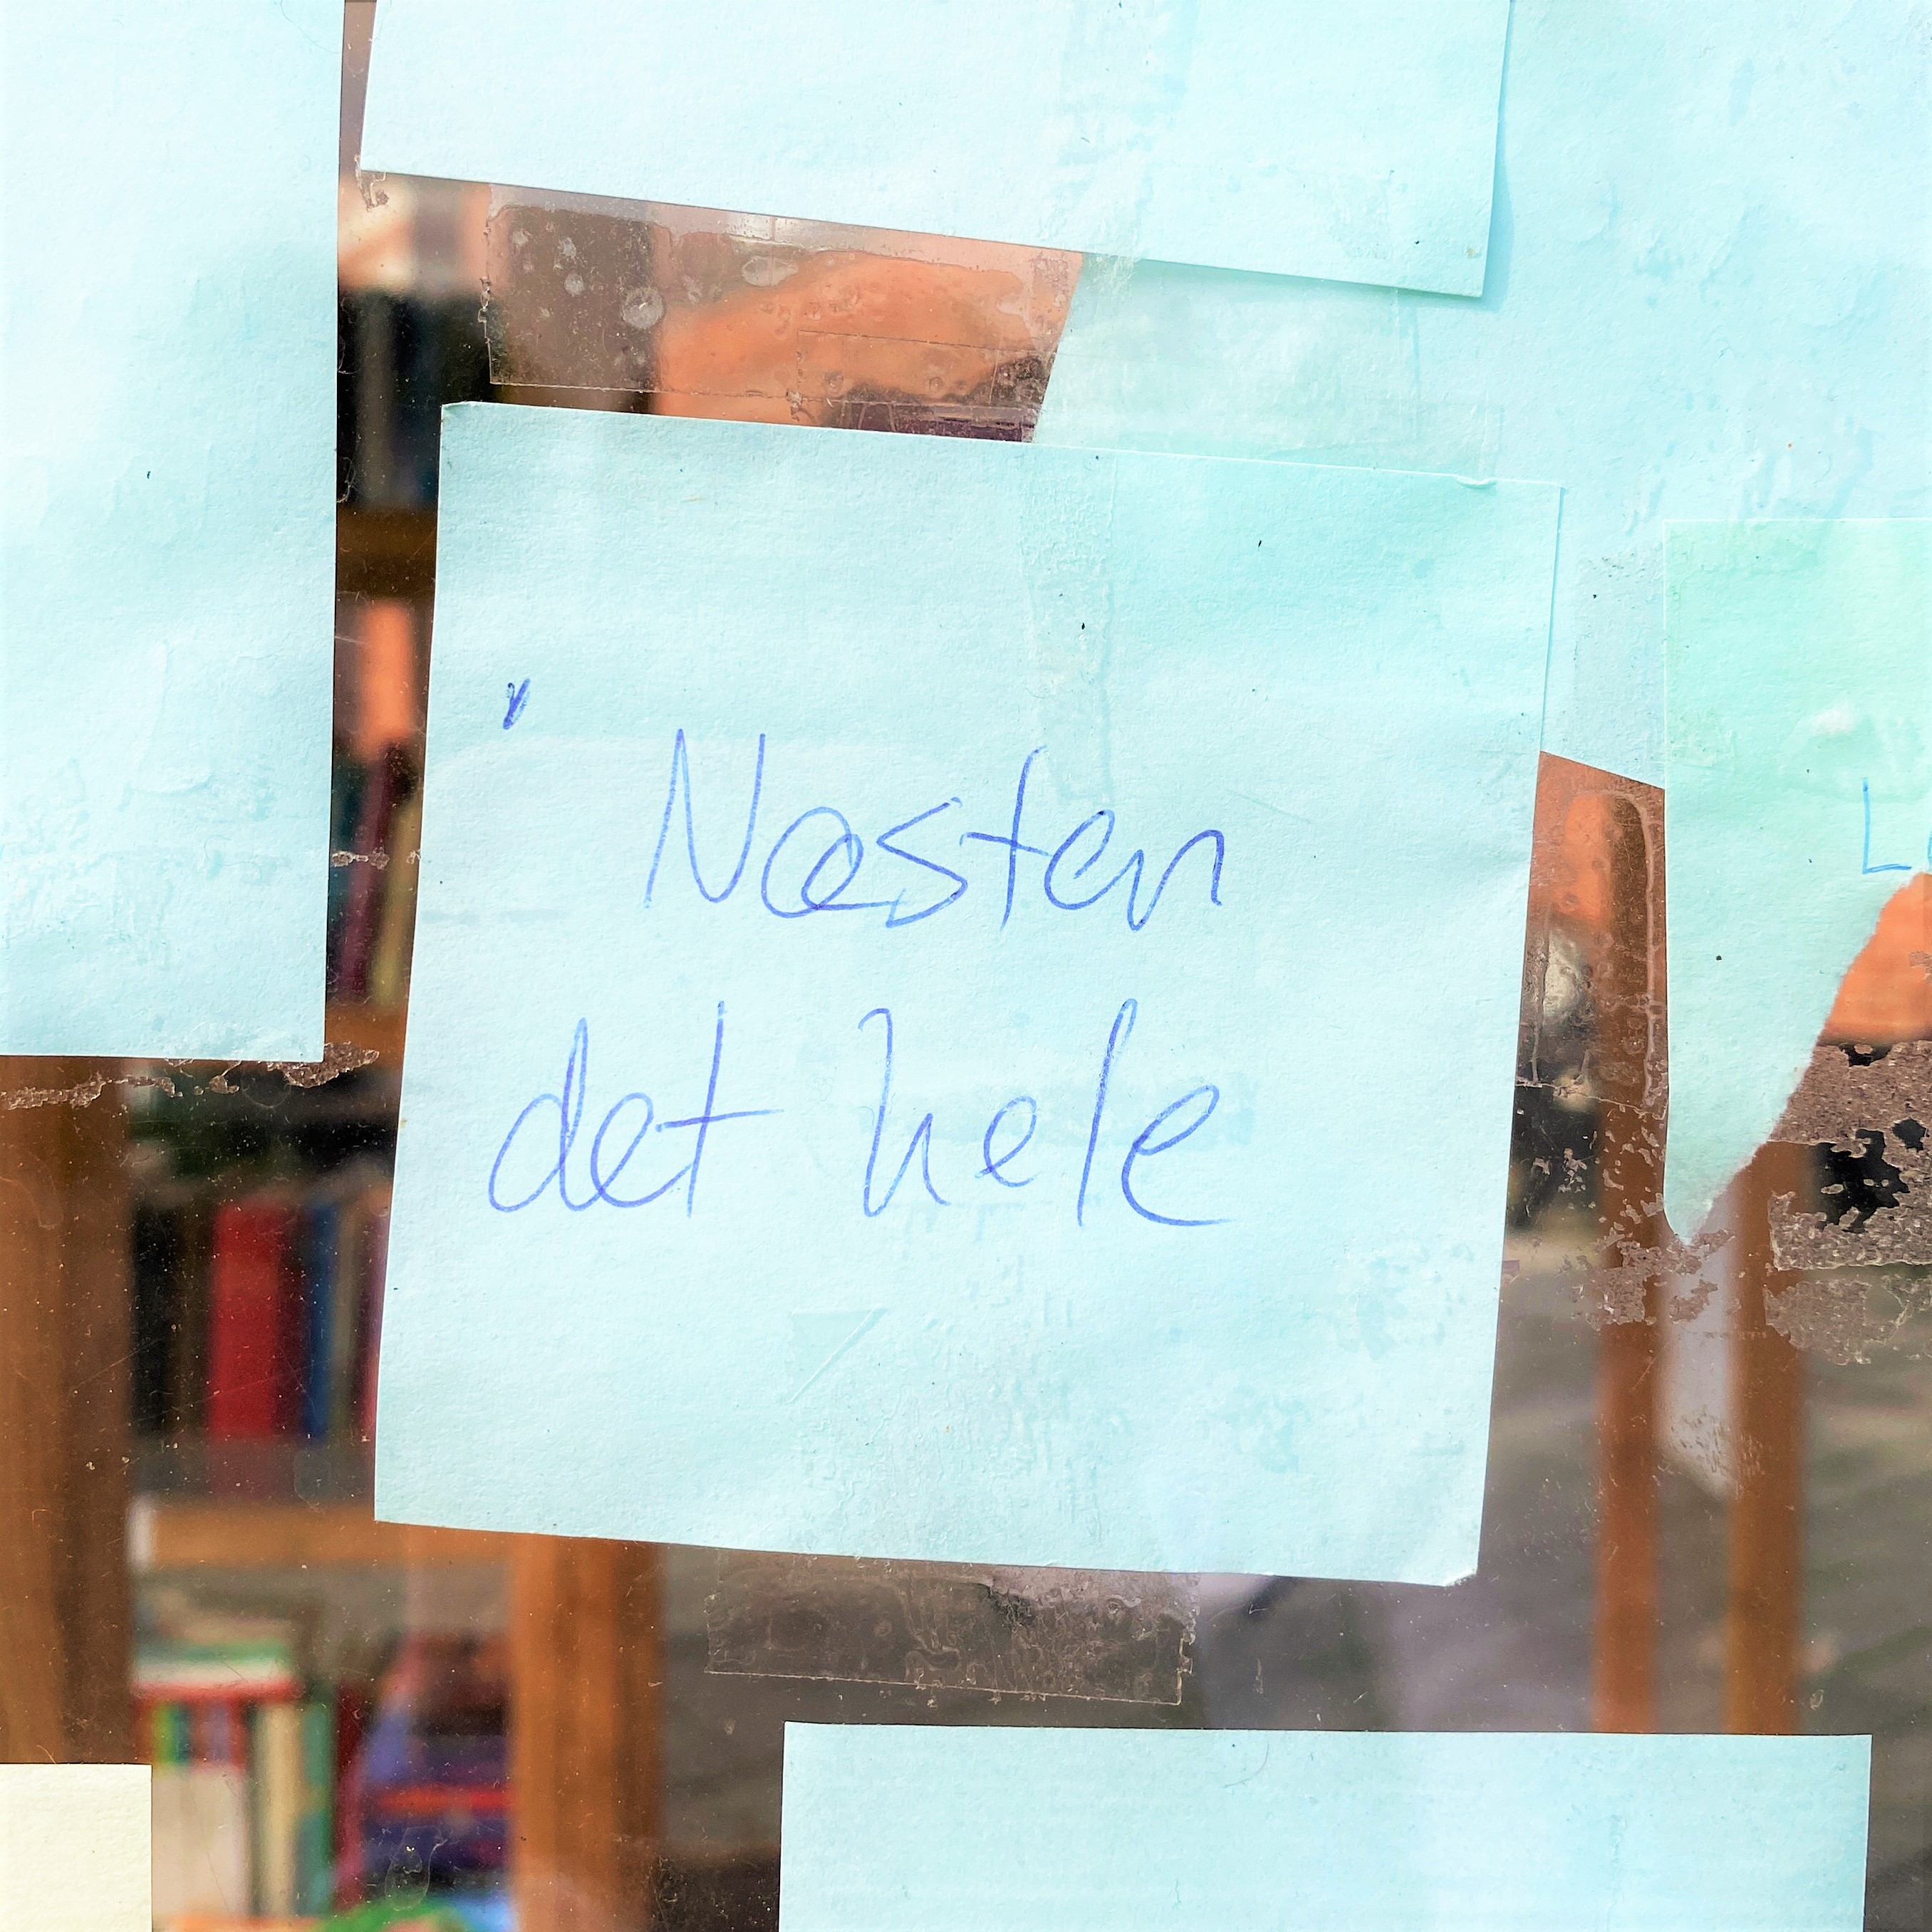 Næsten
det hele